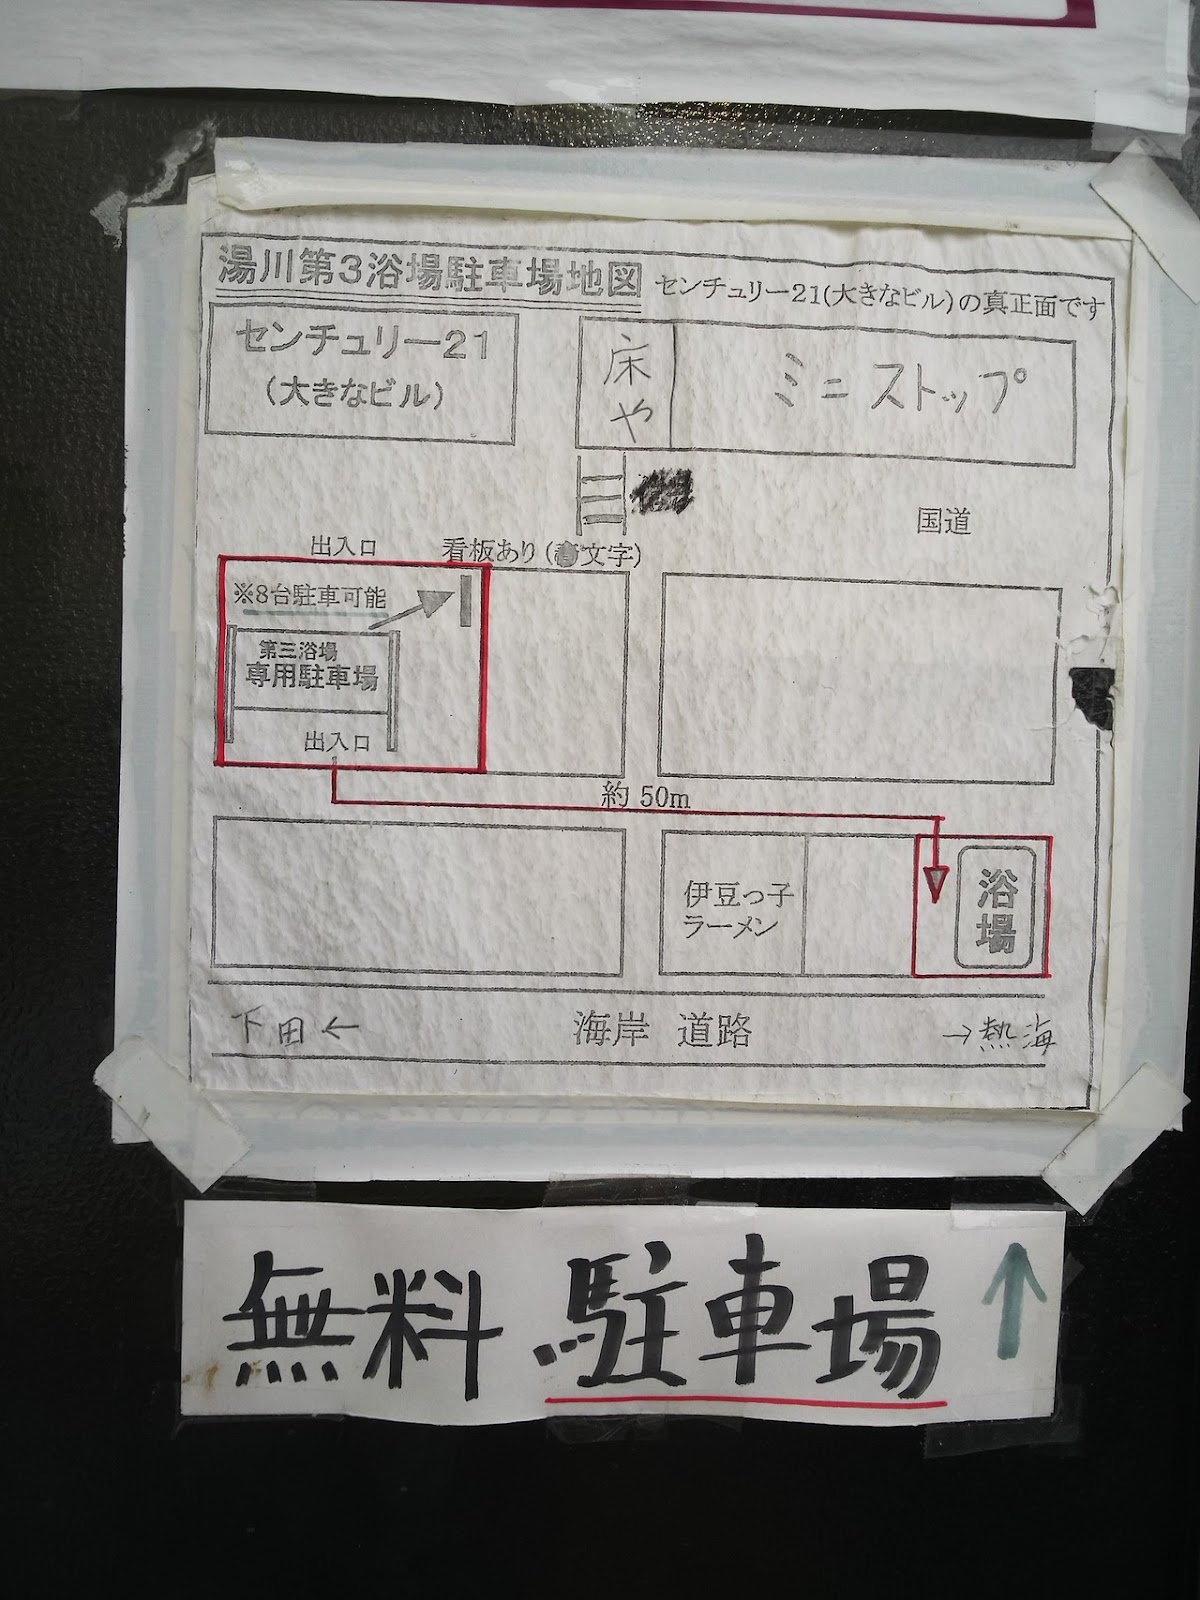 湯川第3浴場駐車場地図
センチュリー21(大きなビル)の真正面です
センチュリー21
(大きなビル)
床や
ミニストップ
国道
出入口
看板あり(青文字)
※8台駐車可能
第三浴場
専用駐車場
出入口
約 50m
伊豆っ子
ラーメン
浴場
下田←
海岸 道路
→熱海
無料 駐車場 ↑